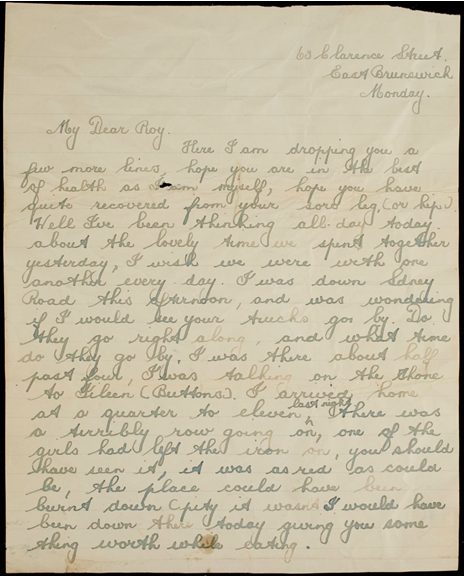 63 Clarence Street.
East Brunswick
Monday.
My Dear Roy.
Here I am dropping you a
few more lines, hope you are in the best
of health as I am myself, hope you have
quite recovered from your sore leg, (or hip.)
Well I've been thinking all day today
about the lovely time we spent together
yesterday, I wish we were with one
another every day. I was down Sdney
Road this afternoon, and was wondering
if I would see your trucks go by. Do
they go right along, and what time
do they go by. I was there about half
past four, I was talking on the Phone
to Eileen (Buttons). I arrived home
at a quarter to eleven last night, there was
a terribly row going on, one of the
girls had left the iron on, you should
have seen it, it was as red as could
be, the place could have been
burnt down (pity it wasn't I would have
been down there today giving you some
thing worth while eating.